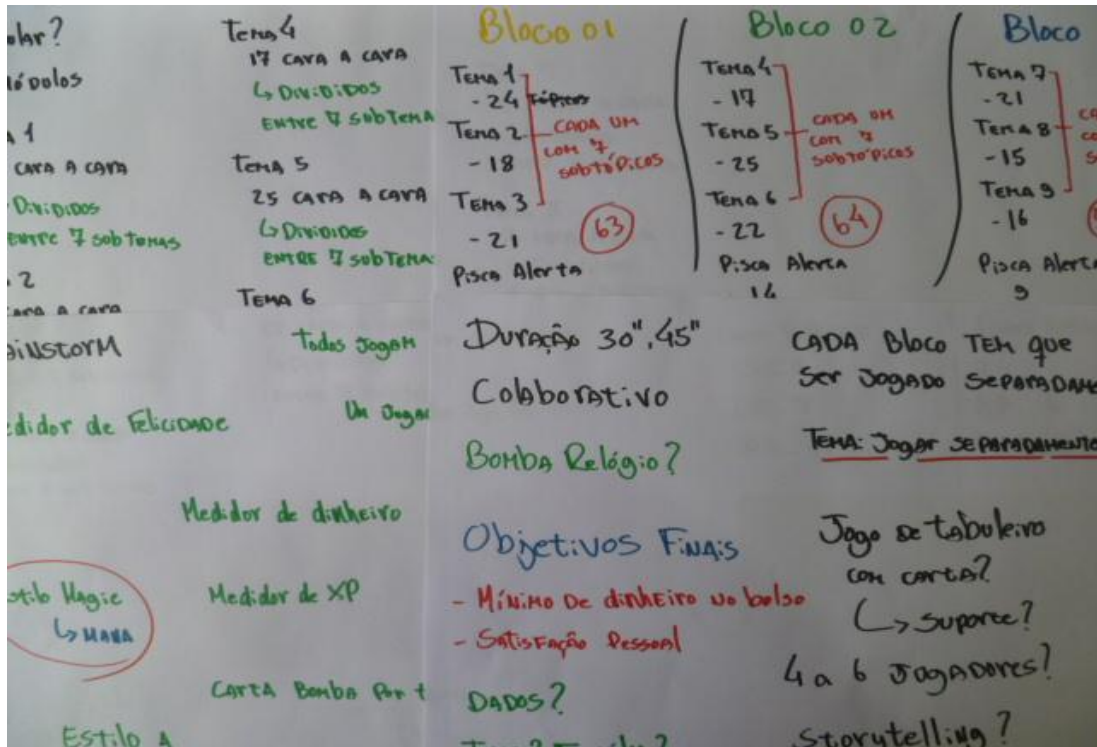 Tema 4
17 CARA A CARA
↳ DiViDiDOS
ENTRE 7 SubTEMA
TEMA 5
25 CARA A CARA
↳ DiViDiDOS
ENTRE 7 SubTEMA
TEMA 6
1
CARA A CARA
DiViDiDOS
ENTRE 7 SubTEMAS
2
CARA A CARA
Bloco 01
TEMA 1
- 24 TÓPICOS
TEMA 2
- 18
TEMA 3
- 21
CADA UM
COM 7
SUBTÓPICOS
63
Pisca Alerta
Bloco 02
TEMA 4
- 17
TEMA 5
- 25
TEMA 6
- 22
CADA UM
COM 7
SUBTÓPICOS
64
Pisca Alerta
Bloco
TEMA 7
- 21
TEMA 8
- 15
TEMA 9
- 16
Pisca Alerta
9
Todos JogAM
de FeliciDADE
Medidor de dinheiro
Magic
↳ MANA
Medidor de XP
CARTA Bomba Por t
Estilo A
Duração 30", 45"
Colaborativo
Bomba Relógio?
Objetivos Finais
- Mínimo De dinheiro no bolso
- Satisfação Pessoal
DADOS?
CADA Bloco TEM que
Ser Jogado SepARADAME
TEMA: Jogar SEPARADAMENTE
Jogo de tabuleiro
com carta?
↳ Suporte?
4 a 6 JogADores?
Storytelling?